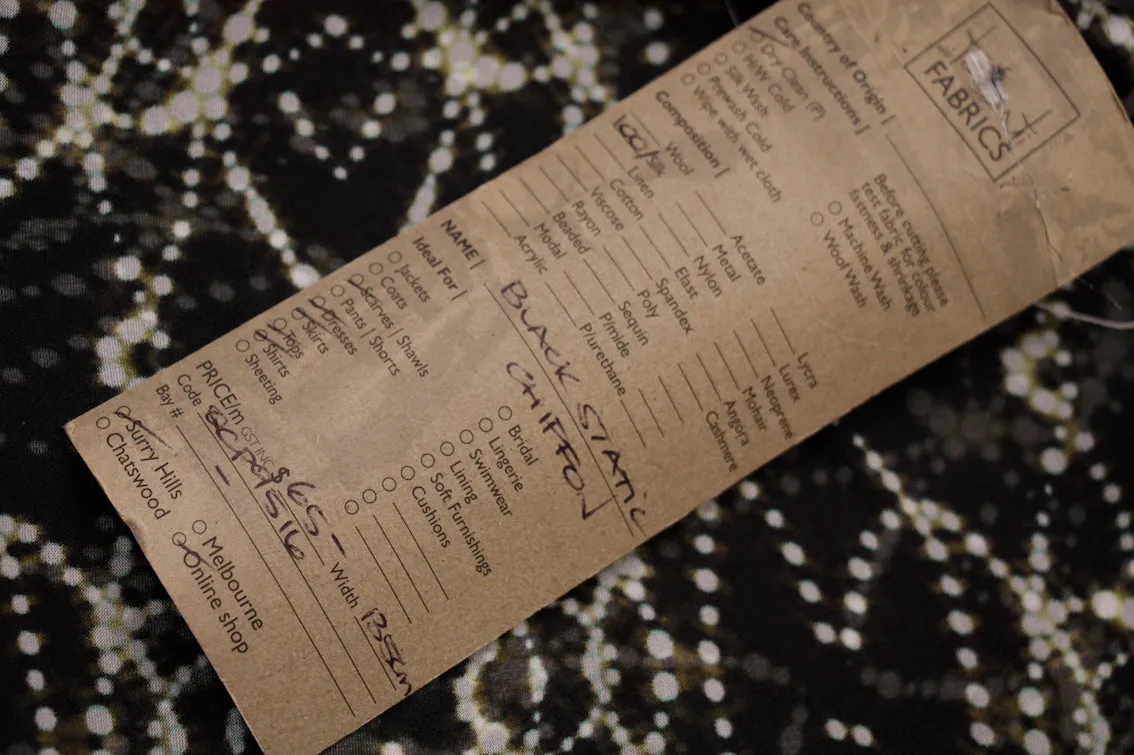 FABRICS
Country of Origin |
Care Instructions |
Dry Clean (P)
H/W Cold
Silk Wash
Prewash Cold
Wipe with wet cloth
Before cutting please
test fabric for colour
fastness & shrinkage
Machine Wash
Wool Wash
Composition |
100% Silk
Wool
Linen
Cotton
Viscose
Rayon
Beaded
Modal
Acrylic
Acetate
Metal
Nylon
Elast
Spandex
Poly
Sequin
P/mide
P/urethane
Lycra
Lurex
Neoprene
Mohair
Angora
Cashmere
NAME |
BLACK STATIC
CHIFFON
Ideal For |
Jackets
Coats
Scarves | Shawls
Pants | Shorts
Dresses
Skirts
Tops
Shirts
Sheeting
Bridal
Lingerie
Swimwear
Lining
Soft Furnishings
Cushions
PRICE/m GST INC $65- Width 135cm
Code
Bay # -
Surry Hills
Chatswood
Melbourne
Online shop